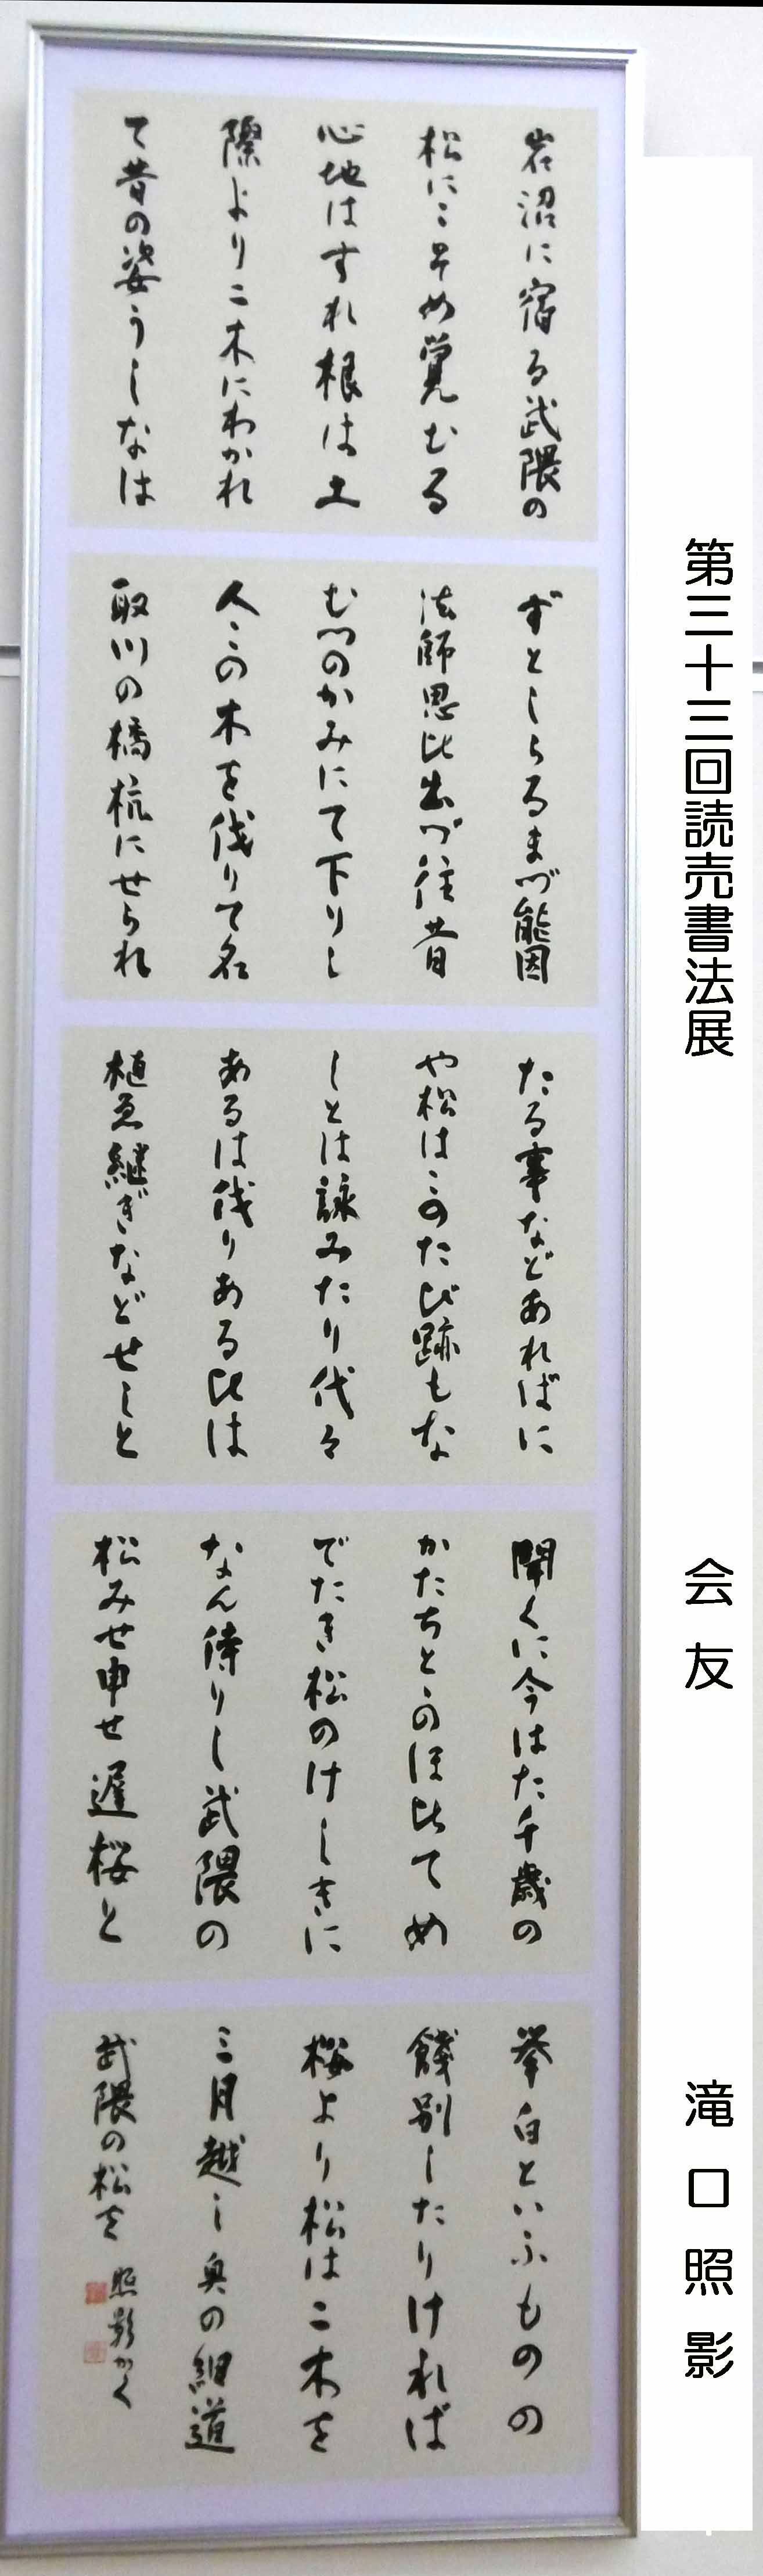 岩沼に宿る武隈の
松にこそめ覚むる
心地はすれ根は土
際より二木にわかれ
て昔の姿うしなは
ずとしらるまづ能因
法師思比出づ往昔
むつのかみにて下りし
人この木を伐りて名
取川の橋杭にせられ
たる事などあればに
や松はこのたび跡もな
しとは詠みたり代々
あるは伐りある比は
植ゑ継ぎなどせしと
聞くに今はた千歳の
かたちとゝのほ比てめ
でたき松のけしきに
なん侍りし武隈の
松みせ申せ遅桜と
挙白といふものの
餞別したりければ
桜より松は二木を
三月越し 奥の細道
武隈の松を 照影かく
第三十三回読売書法展 会友 滝口照影